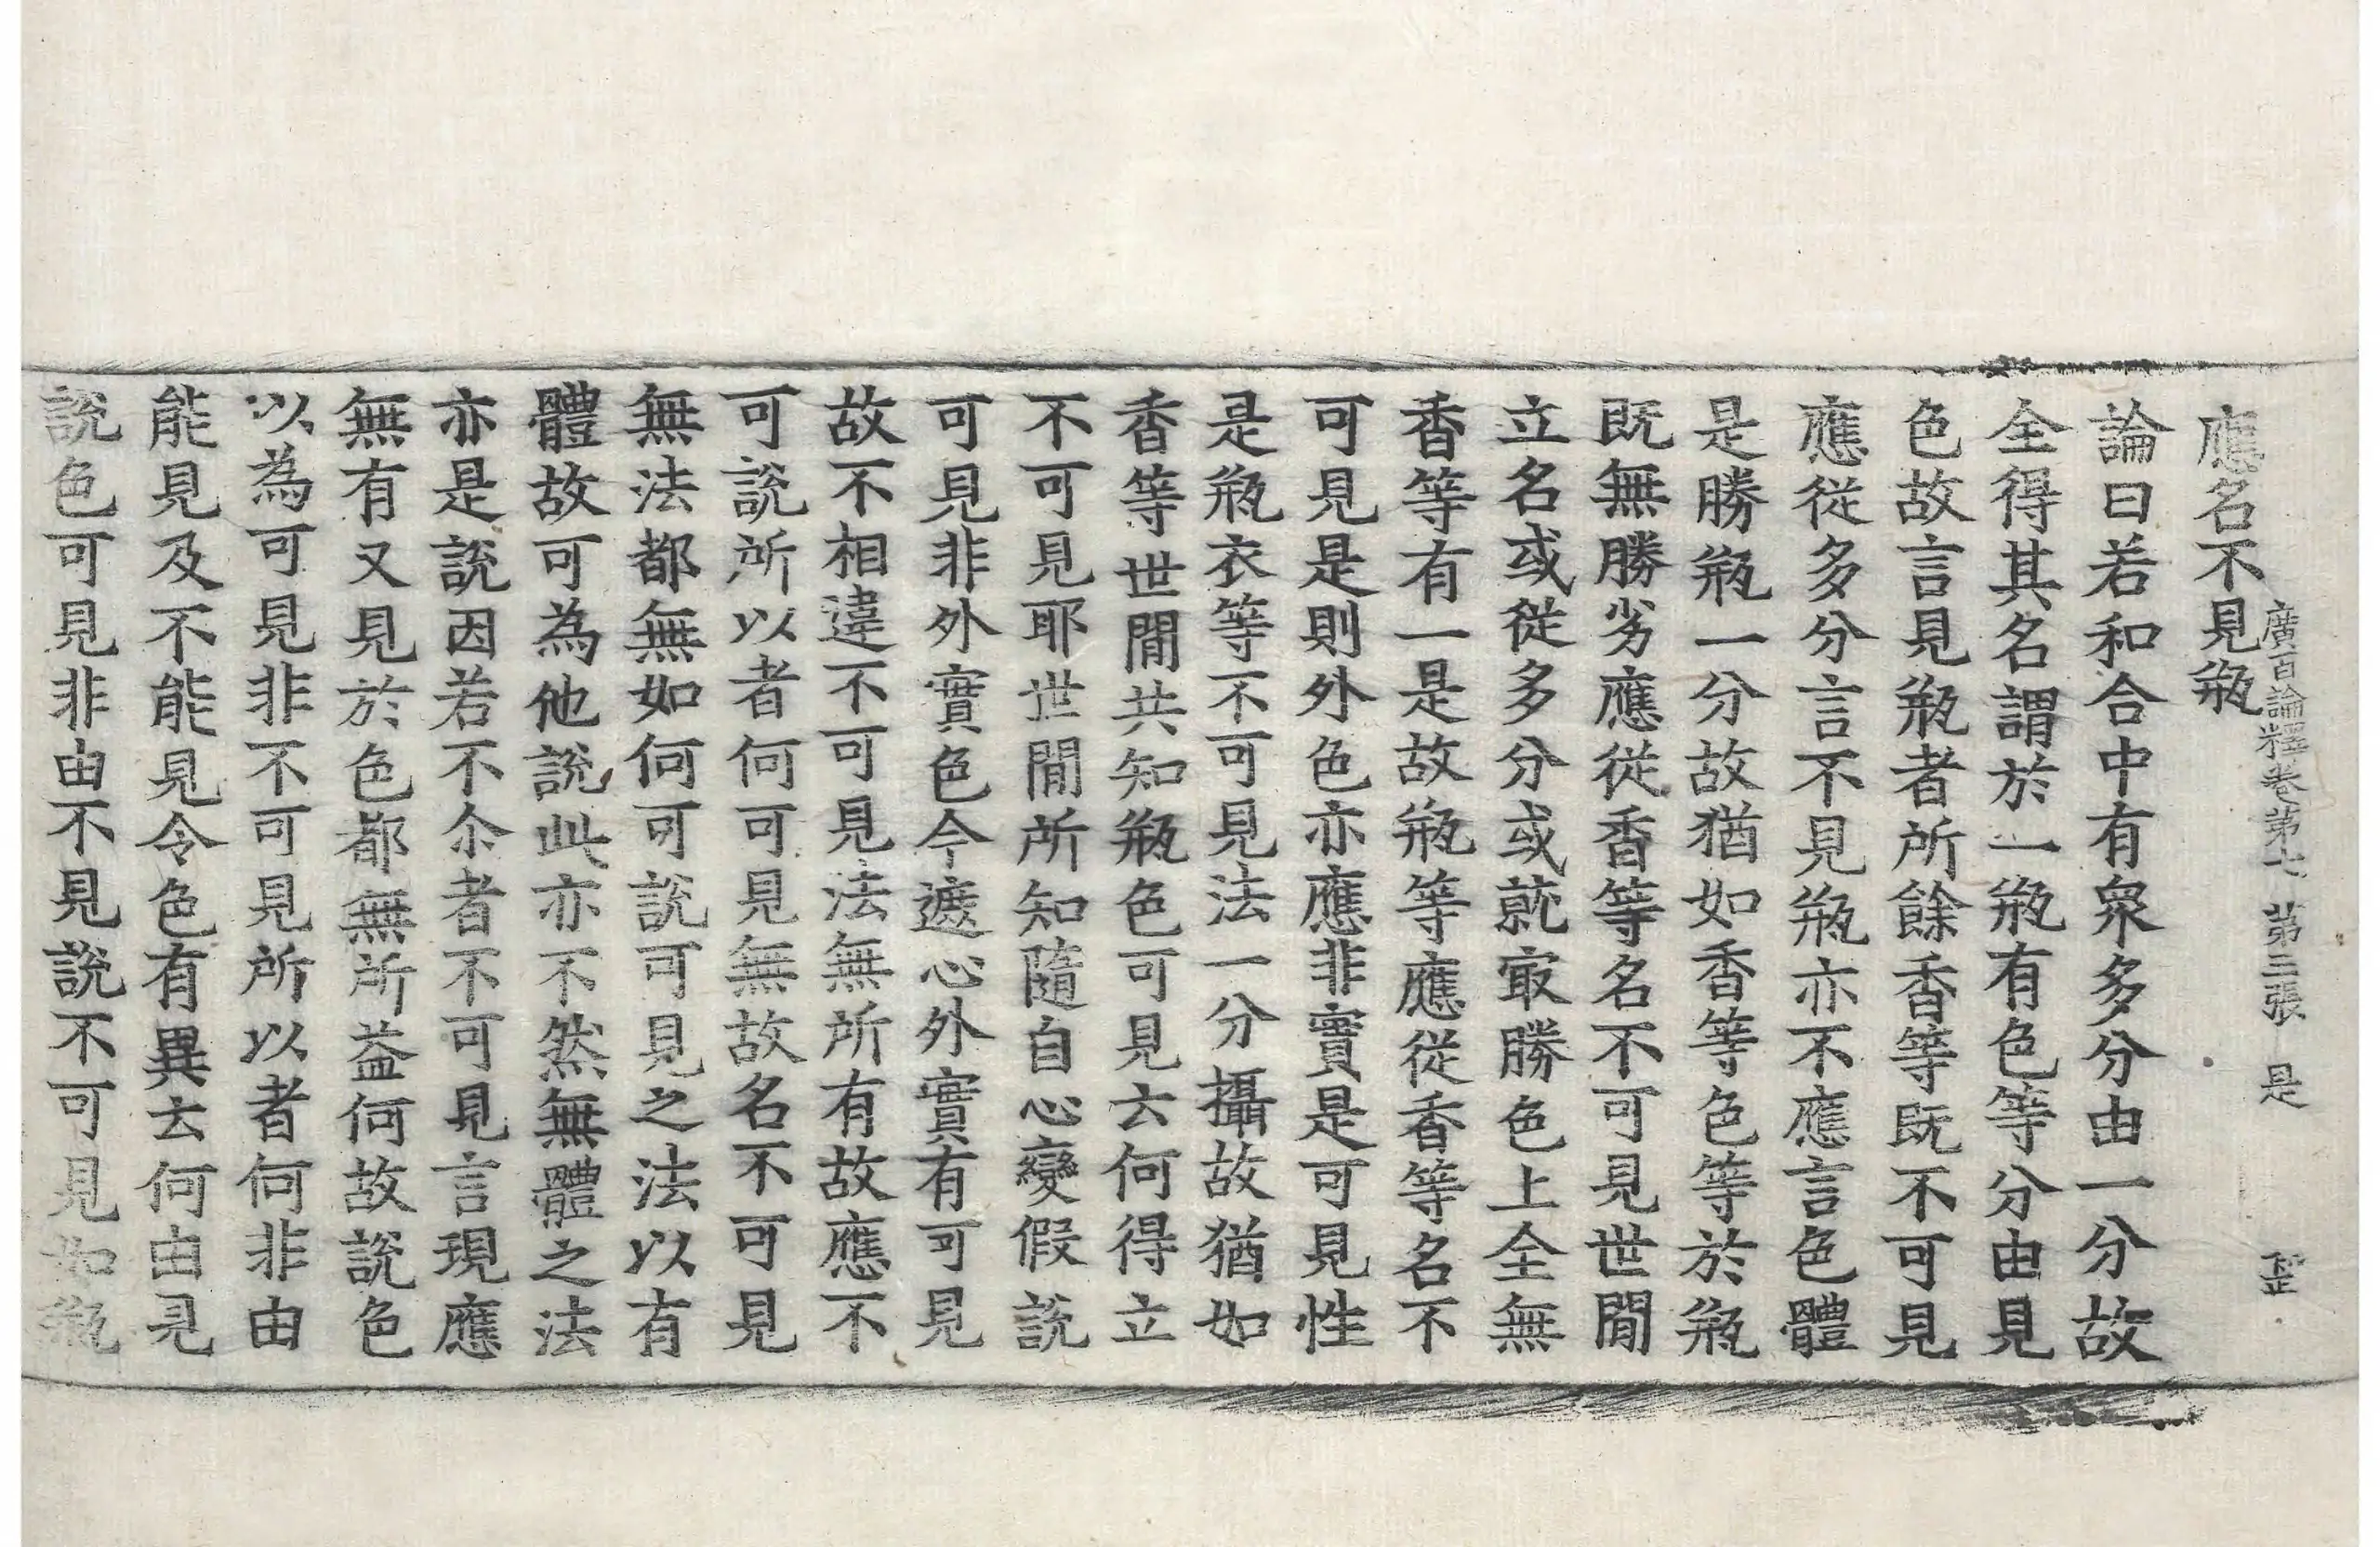 廣百論釋卷第七 第三張 是
應名不見瓶
論曰若和合中有衆多分由一分故
全得其名謂於一瓶有色等分由見
色故言見瓶者所餘香等既不可見
應從多分言不見瓶亦不應言色體
是勝瓶一分故猶如香等色等於瓶
既無勝劣應從香等名不可見世間
立名或從多分或就冣勝色上全無
香等有一是故瓶等應從香等名不
可見是則外色亦應非實是可見性
是瓶衣等不可見法一分攝故猶如
香等世間共知瓶色可見云何得立
不可見耶世間所知隨自心變假說
可見非外實色今遮心外實有可見
故不相違不可見法無所有故應不
可說所以者何可見無故名不可見
無法都無如何可說可見之法以有
體故可為他說此亦不然無體之法
亦是說因若不尒者不可見言現應
無有又見於色都無所益何故說色
以為可見非不可見所以者何非由
能見及不能見令色有異云何由見
說色可見非由不見說不可見如瓶